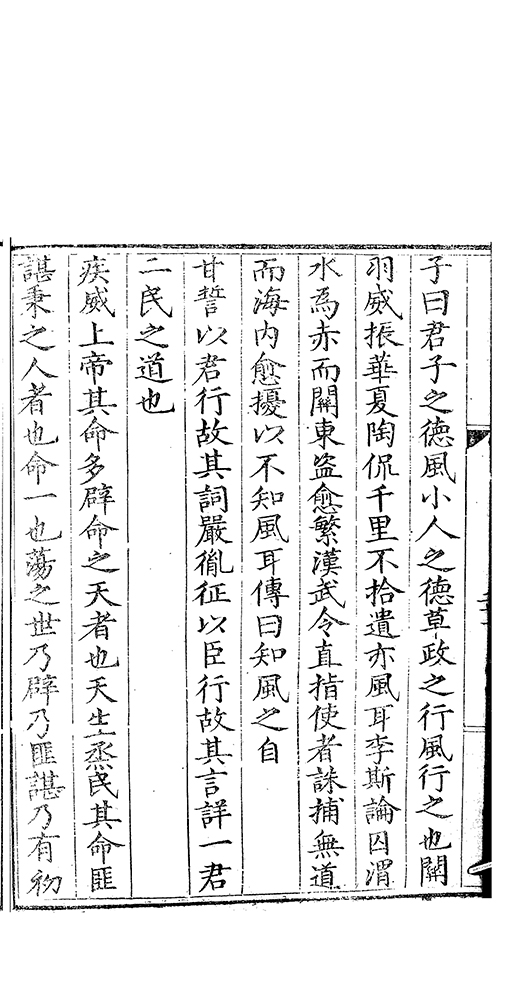 子曰君子之德風小人之德草政之行風行之也關
羽威振華夏陶侃千里不拾遺亦風耳李斯論囚渭
水為赤而關東盗愈繁漢武令直指使者誅捕無道
而海内愈擾以不知風耳傳曰知風之自
甘誓以君行故其詞嚴胤征以臣行故其言詳一君
二民之道也
疾威上帝其命多辟命之天者也天生烝民其命匪
諶秉之人者也命一也蕩之世乃辟乃匪諶乃有初